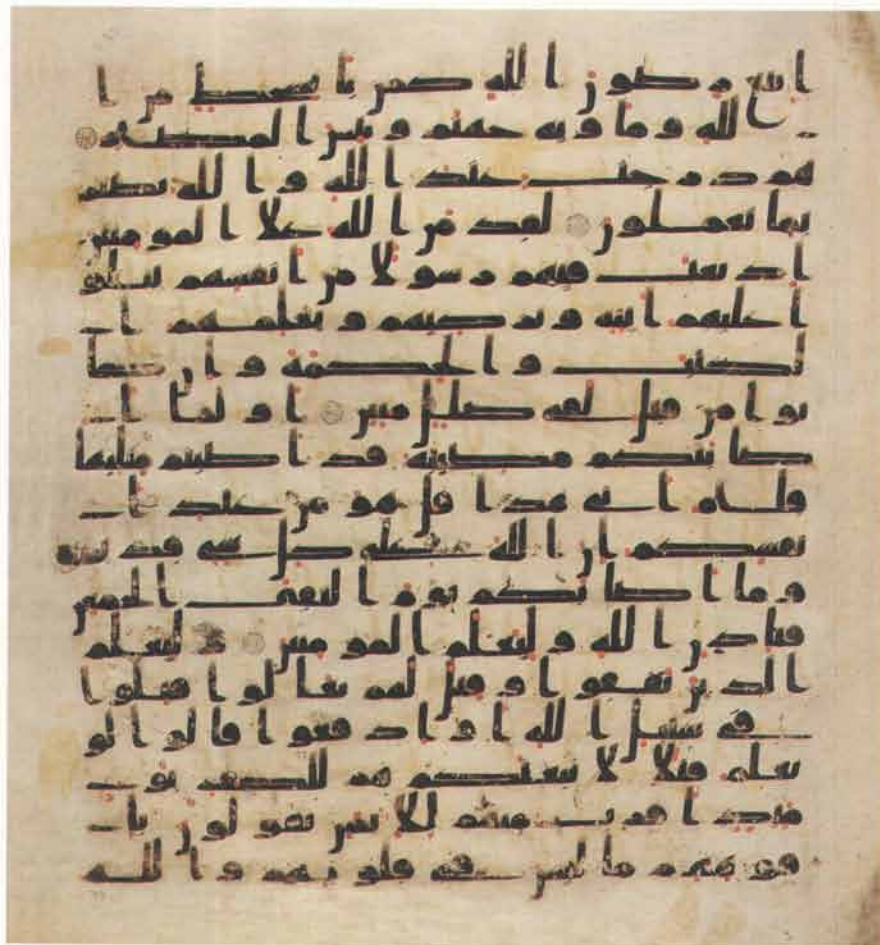 اتبع رضون الله كمن با بسخط من ا
لله وماويه جهنم وبيس المصير
هم درجت عند الله والله بصير
بما يعملون لقد من الله علا المومنين
اذ بعث فيهم رسولا من انفسهم يتلو
ا عليهم ايته ويزكيهم ويعلمهم ا
لكتب والحكمة وان كا
نوا من قبل لفي ضلل مبين او لما ا
صابتكم مصيبة قد اصبتم مثليها
قلتم اني هذا قل هو من عند ا
نفسكم ان الله على كل شي قدير
وما اصابكم يوم التقى الجمعن
فباذن الله وليعلم المومنين وليعلم
الذين نفقوا وقيل لهم تعالوا قتلوا
في سبيل الله او ادفعوا قالوا لو
نعلم قتلا لاتبعنكم هم للكفر يو
ميذ اقرب منهم للايمن يقولون با
فوههم ما ليس في قلوبهم والله